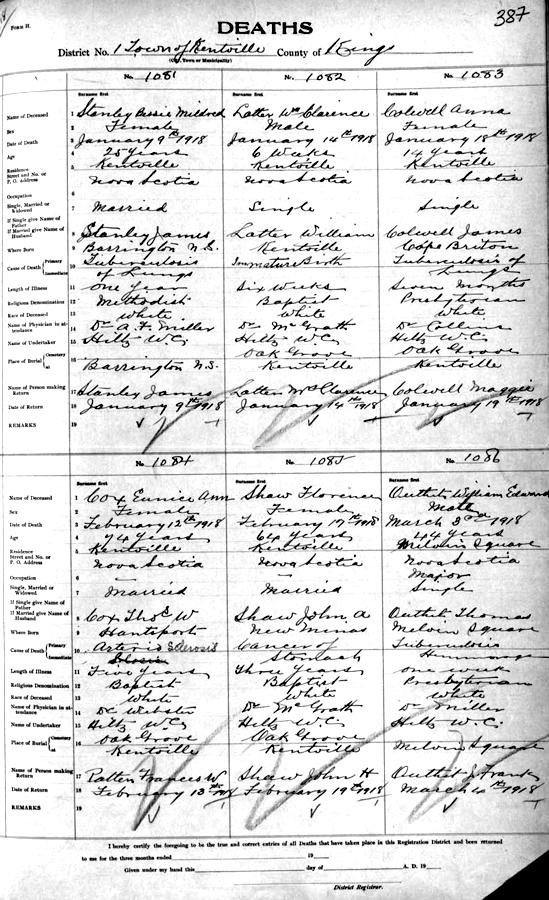 FORM H.
387
DEATHS
District No. 1 Town of Kentville County of Kings
(City, Town or Municipality)
No. 1081
No. 1082
No. 1083
Surname first
Surname first
Surname first
Name of Deceased 1 Stanley Bessie Mildred Latter Wm Clarence Colwell Anna
Sex 2 Female Male Female
Date of Death 3 January 9th 1918 January 14th 1918 January 18th 1918
Age 4 25 Years 6 Weeks 14 Years
Residence Street and No. or P. O. Address 5 Kentville Kentville Kentville
Nova Scotia Nova Scotia Nova Scotia
Occupation 6
Single, Married or Widowed 7 Married Single Single
If Single give Name of Father
If Married give Name of Husband 8 Stanley James Latter William Colwell James
Where Born 9 Barrington N.S. Kentville Cape Briton
Cause of Death Primary Immediate 10 Tuberculosis of Lungs Immature Birth Tuberculosis of Lungs
Length of Illness 11 One Year Six Weeks Seven Months
Religious Denomination 12 Methodist Baptist Presbyterian
Race of Deceased 13 White White White
Name of Physician in attendance 14 Dr A. F. Miller Dr McGrath Dr Collins
Name of Undertaker 15 Hiltz W.C. Hiltz W.C. Hiltz W.C.
Place of Burial Cemetery at 16 Oak Grove Oak Grove
Barrington N.S. Kentville Kentville
Name of Person making Return 17 Stanley James Latter Mrs Clarence Colwell Maggie
Date of Return 18 January 9th 1918 January 14th 1918 January 19th 1918
REMARKS 19
No. 1084
No. 1085
No. 1086
Surname first
Surname first
Surname first
Name of Deceased 1 Cox Eunice Ann Shaw Florence Outhit William Edward
Sex 2 Female Female Male
Date of Death 3 February 12th 1918 February 17th 1918 March 3rd 1918
Age 4 74 Years 64 Years 44 Years
Residence Street and No. or P. O. Address 5 Kentville Kentville Melvin Square
Nova Scotia Nova Scotia Nova Scotia
Occupation 6 Major
Single, Married or Widowed 7 Married Married Single
If Single give Name of Father
If Married give Name of Husband 8 Cox Thos W Shaw John A Outhit Thomas
Where Born 9 Hantsport New Minas Melvin Square
Cause of Death Primary Immediate 10 Arterio Sclerosis Cancer of Stomach Tuberculosis
Length of Illness 11 Five Years Three Years one week
Religious Denomination 12 Baptist Baptist Presbyterian
Race of Deceased 13 White White White
Name of Physician in attendance 14 Dr Webster Dr McGrath Dr Miller
Name of Undertaker 15 Hiltz W.C. Hiltz W.C. Hiltz W.C.
Place of Burial Cemetery at 16 Oak Grove Oak Grove
Kentville Kentville Melvin Square
Name of Person making Return 17 Patten Frances W Shaw John H Outhit J Frank
Date of Return 18 February 13th 1918 February 19th 1918 March 4th 1918
REMARKS 19
I hereby certify the foregoing to be the true and correct entries of all Deaths that have taken place in this Registration District and been returned
to me for the three months ended 19
Given under my hand this day of A. D. 19
District Registrar.